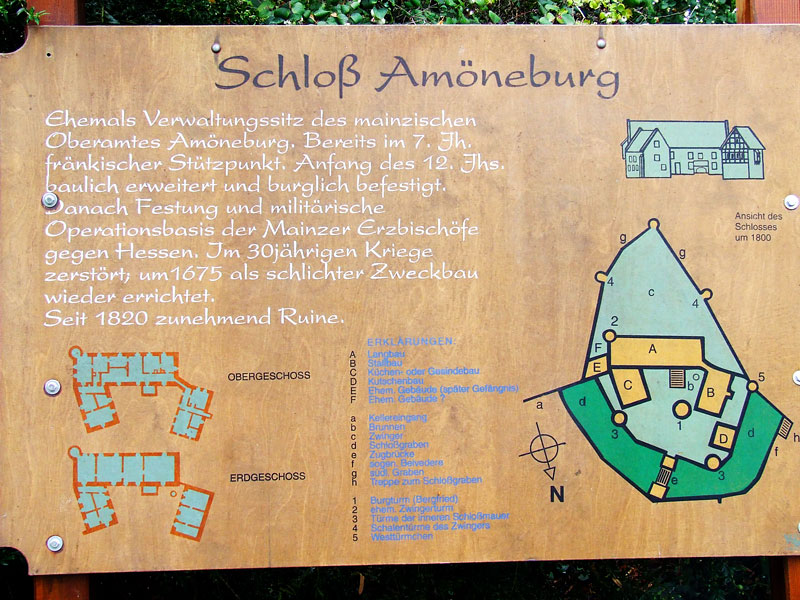 Schloß Amöneburg
Ehemals Verwaltungssitz des mainzischen
Oberamtes Amöneburg. Bereits im 7. Jh.
fränkischer Stützpunkt. Anfang des 12. Jhs.
baulich erweitert und burglich befestigt.
Danach Festung und militärische
Operationsbasis der Mainzer Erzbischöfe
gegen Hessen. Im 30jährigen Kriege
zerstört; um 1675 als schlichter Zweckbau
wieder errichtet.
Seit 1820 zunehmend Ruine.
Ansicht des
Schlosses
um 1800
OBERGESCHOSS
ERDGESCHOSS
ERKLÄRUNGEN:
A Langbau
B Stallbau
C Küchen- oder Gesindebau
D Kutschenbau
E Ehem. Gebäude (später Gefängnis)
F Ehem. Gebäude ?
a Kellereingang
b Brunnen
c Zwinger
d Schloßgraben
e Zugbrücke
f sogen. Belvedere
g südl. Graben
h Treppe zum Schloßgraben
1 Burgturm (Bergfried)
2 ehem. Zwingerturm
3 Türme der inneren Schloßmauer
4 Schalentürme des Zwingers
5 Westtürmchen
g
g
4
c
4
2
F
A
E
C
b
B
5
a
d
1
3
D
d
h
f
e
3
N